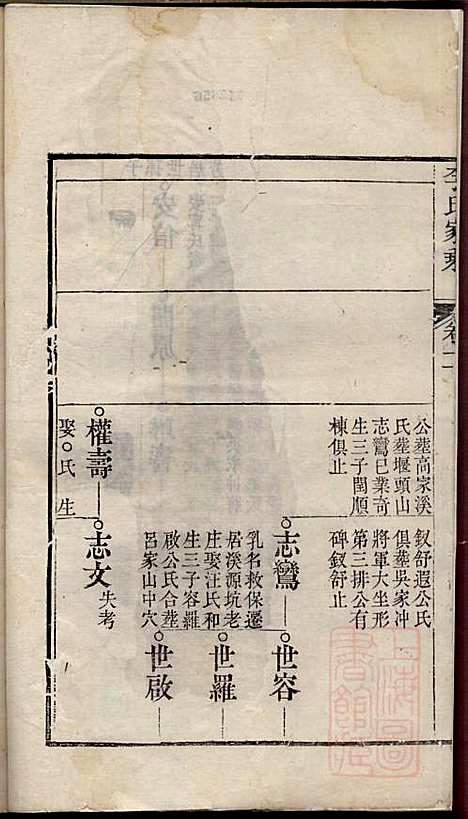 李氏家乘
卷十一
公塟高家溪
氏塟堰頭山
志鸞巳業奇
生三子閏順
棟俱止
釵舒遐公氏
俱塟吳家冲
將軍大坐形
第三排公有
碑釵舒止
志鸞
乳名救保遷
居溪源坑老
庄娶汪氏和
生三子容羅
啟公氏合塟
呂家山中穴
世容
世羅
世啟
權壽
娶○氏 生
志文
失考
上海圖書館藏